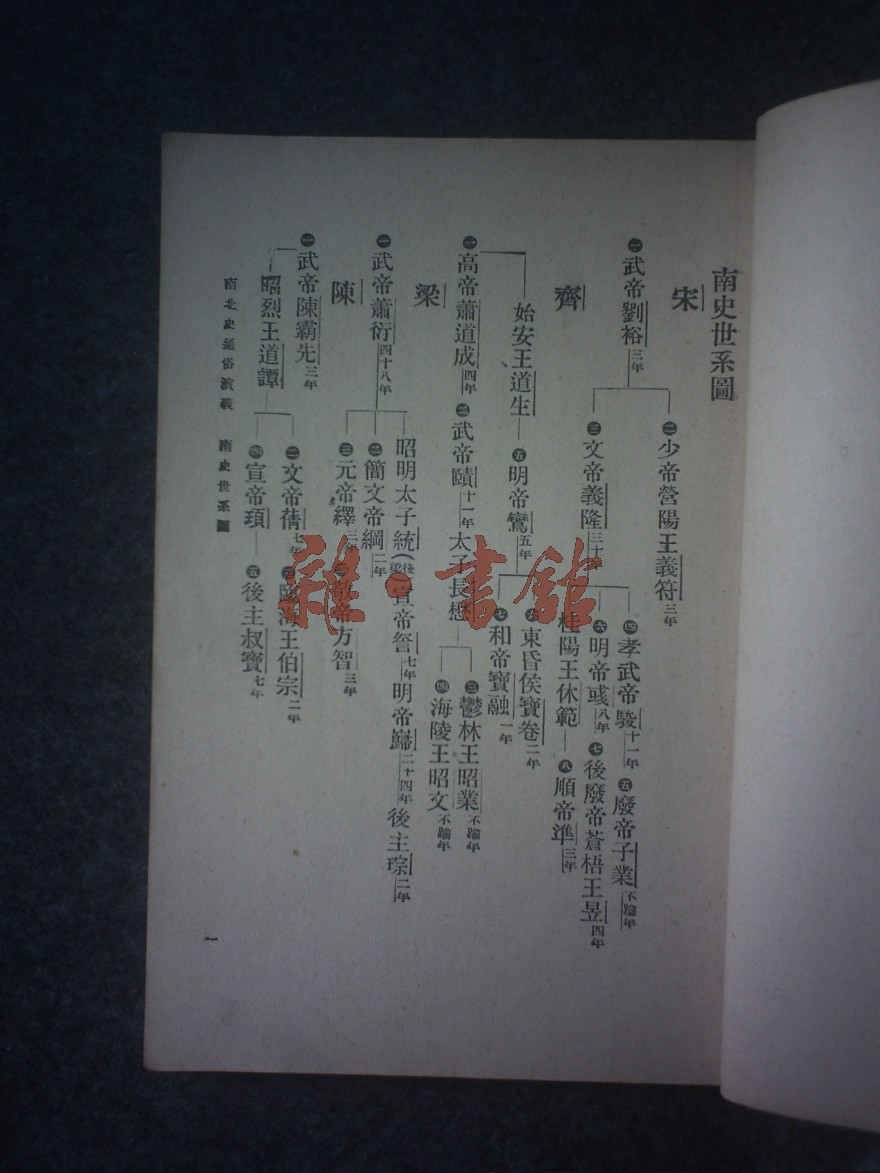 南史世系圖
宋
㊀武帝劉裕三年
㊁少帝營陽王義符三年
㊂文帝義隆三十年
㊃孝武帝駿十一年 ㊄廢帝子業不踰年
㊅明帝彧八年 ㊆後廢帝蒼梧王昱四年
桂陽王休範 ㊇順帝準三年
齊
始安王道生 ㊄明帝鸞五年
㊅東昏侯寶卷二年
㊆和帝寶融一年
㊀高帝蕭道成四年 ㊁武帝賾十一年 太子長懋
㊂鬱林王昭業不踰年
㊃海陵王昭文不踰年
梁
㊀武帝蕭衍四十八年
昭明太子統(後梁)宣帝詧七年 明帝巋二十四年 後主琮二年
㊁簡文帝綱二年
㊂元帝繹三年 敬帝方智三年
陳
㊀武帝陳霸先三年
昭烈王道譚
㊁文帝蒨七年 臨海王伯宗二年
㊃宣帝頊 ㊄後主叔寶七年
南北史通俗演義 南史世系圖
一
雜·書館